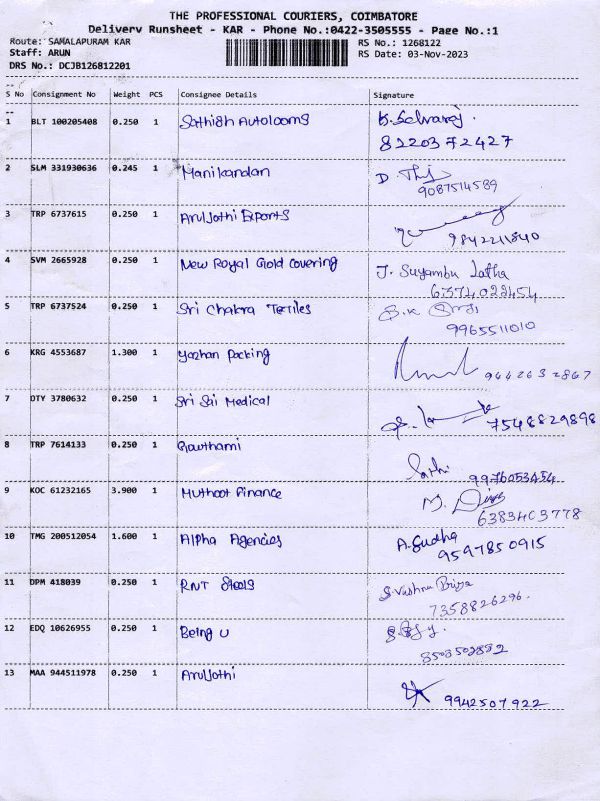 THE PROFESSIONAL COURIERS, COIMBATORE
Delivery Runsheet - KAR - Phone No.:0422-3505555 - Page No.:1
Route: SAMALAPURAM KAR RS No.: 1268122
Staff: ARUN RS Date: 03-Nov-2023
DRS No.: DCJB126812201
S No Consignment No Weight PCS Consignee Details Signature
1 BLT 100205408 0.250 1 Sathish Autolooms K. Selvaraj
8220372427
2 SLM 331930636 0.245 1 Manikandan D.
9087514589
3 TRP 6737615 0.250 1 Aruljothi Exports
9842211840
4 SVM 2665928 0.250 1 New Royal Gold Covering J. Suyambu Latha
6374022454
5 TRP 6737524 0.250 1 Sri Chakra Textiles S.K
9965511010
6 KRG 4553687 1.300 1 yazhan Packing
9442632867
7 OTY 3780632 0.250 1 Sri Sai Medical
7548829898
8 TRP 7614133 0.250 1 Gowthami Sathi
9976053454
9 KOC 61232165 3.900 1 Muthoot Finance M.
6383403778
10 TMG 200512054 1.600 1 Alpha Agencies A. Sudha
9597850915
11 DPM 418039 0.250 1 RNT Steels S. Vishnu Priya
7358826296.
12 EDQ 10626955 0.250 1 Being U
8503502892
13 MAA 944511978 0.250 1 Aruljothi
9942507922